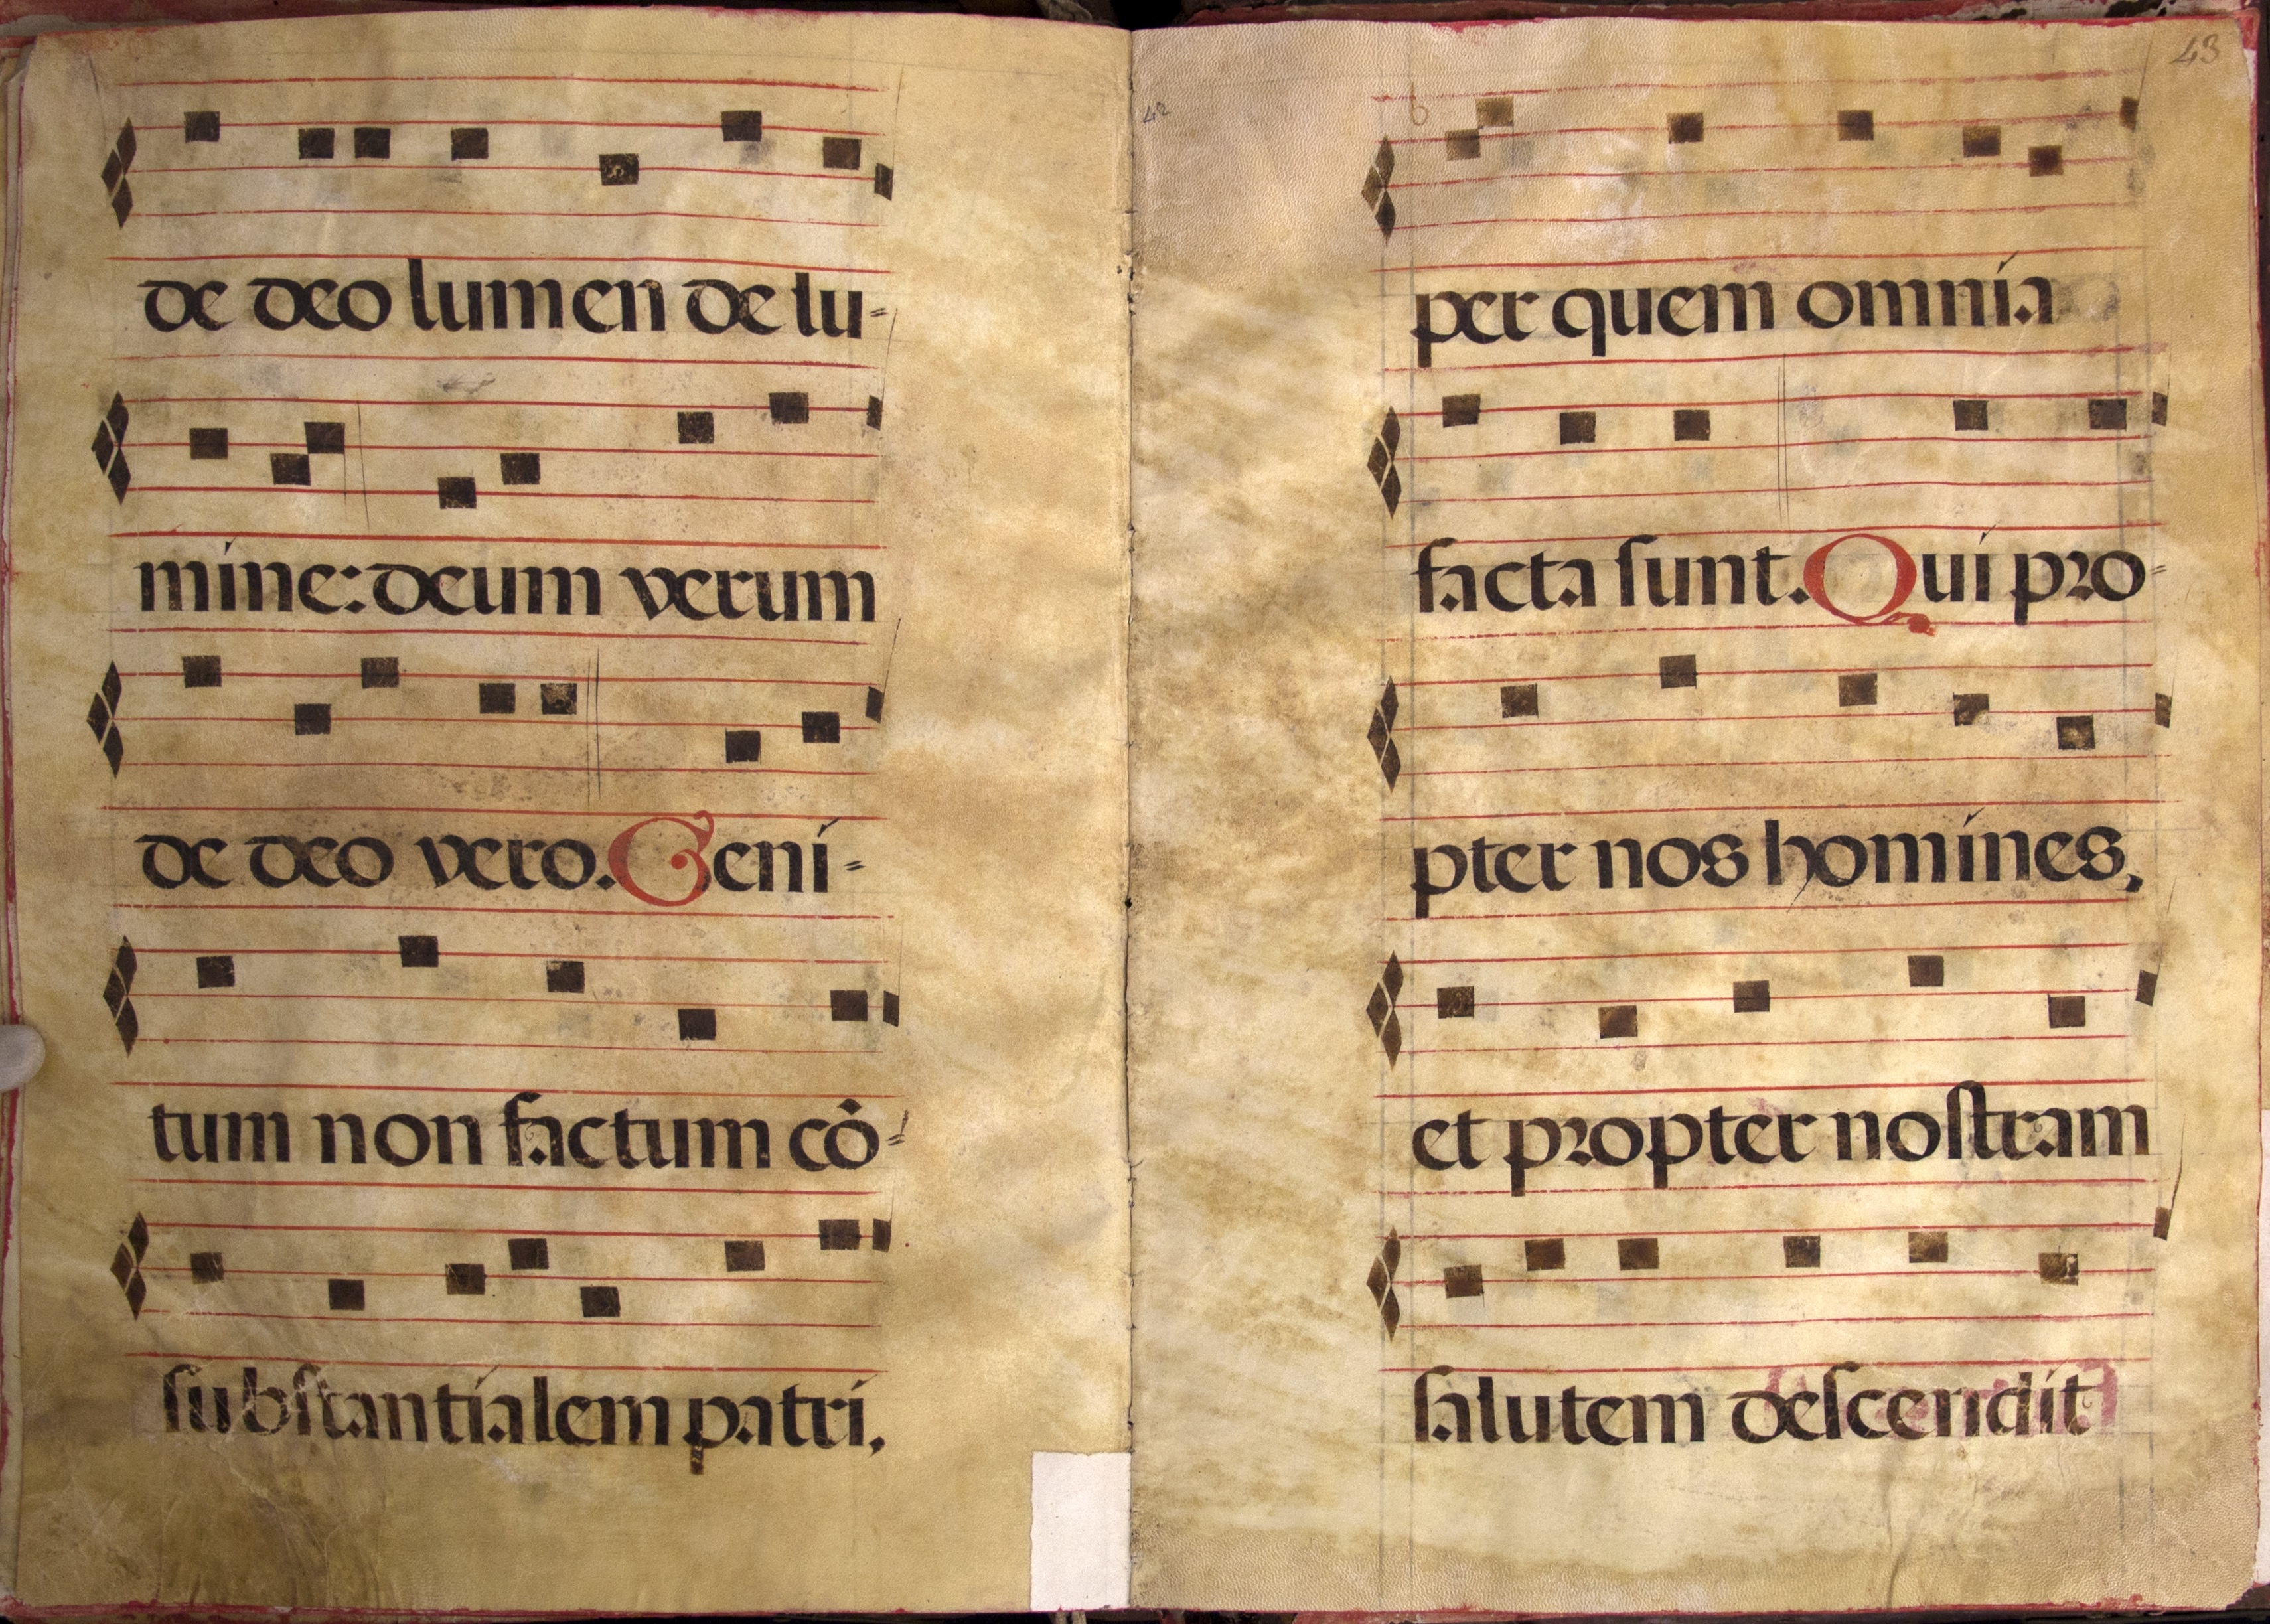 de deo lumen de lu=
mine: deum verum
de deo vero. Geni=
tum non factum cō=
substantialem patri,
43
42
b
per quem omnia
facta sunt. Qui pro=
pter nos homines,
et propter nostram
salutem descendit